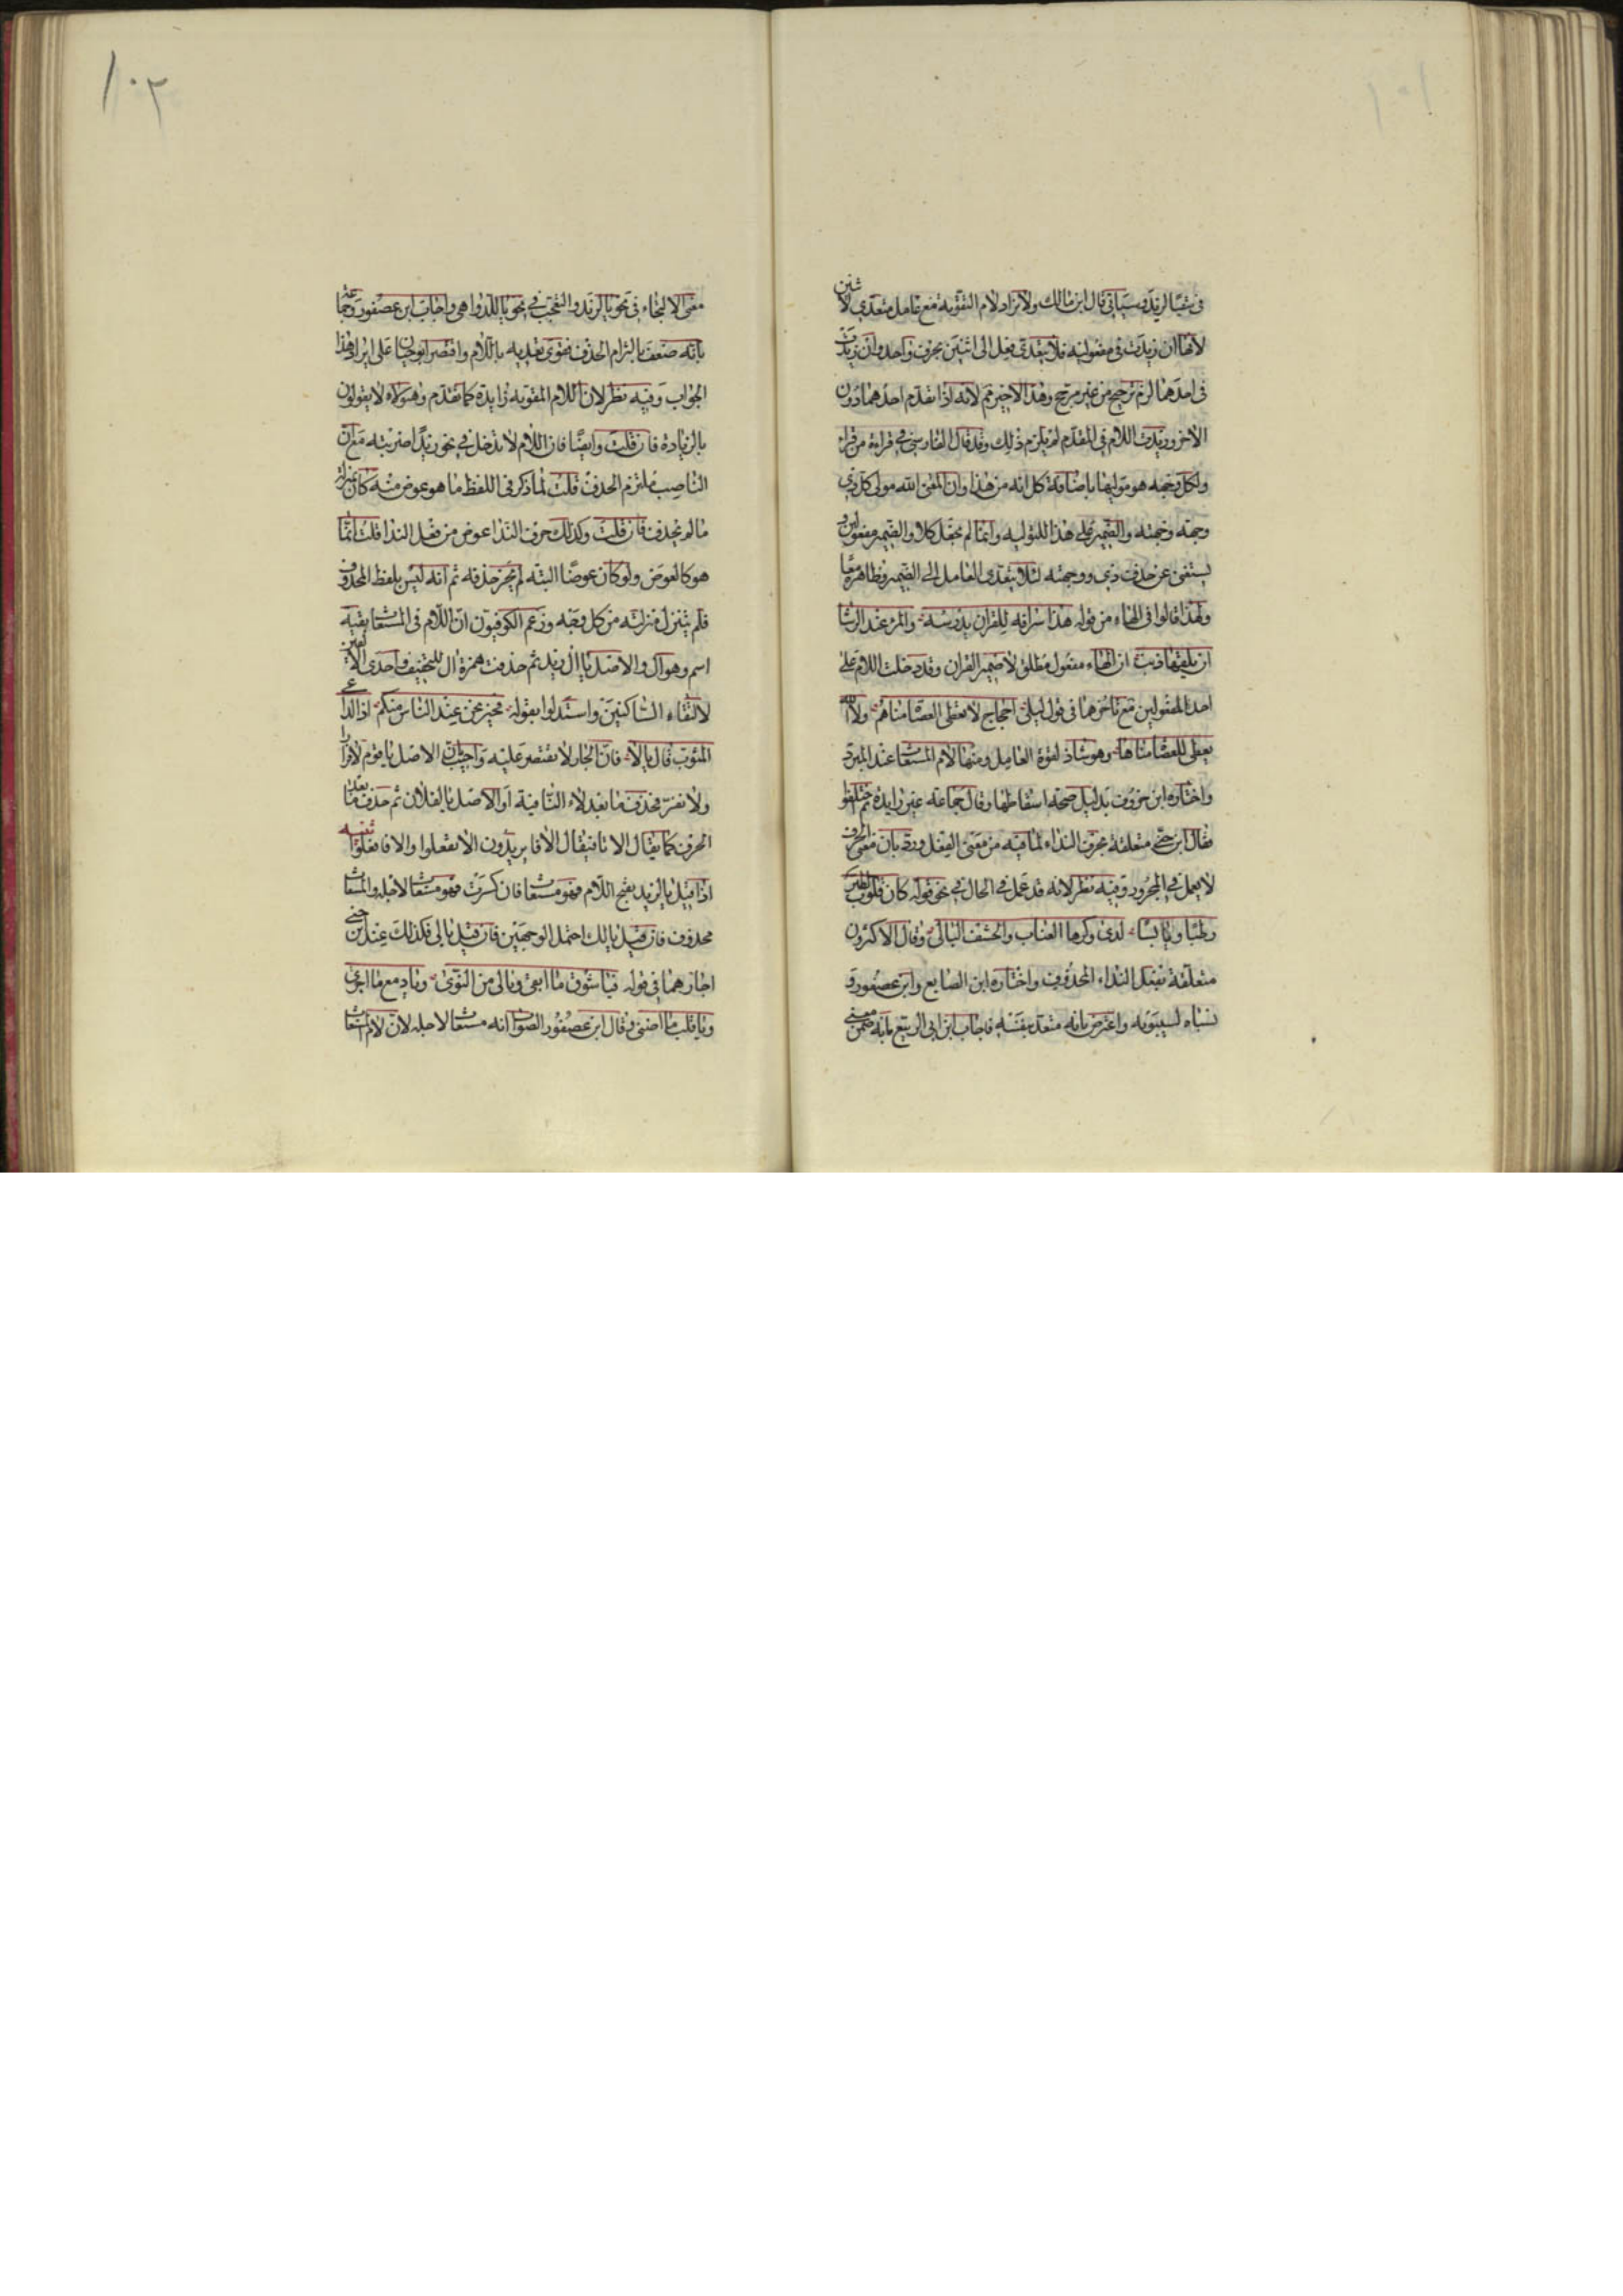 ١٠١
في سقيا لزيد وسياتي قال ابن مالك ولا تزاد لام التقوية مع عامل متعدي لاثنين
لانها ان زيدت في مفعوليه فلا يتعدي فعل الى اثنين بحرف واحد وان زيدت
في احدهما لزم ترجيح من غير مرجح وهذا الاخير مم لانه اذا تقدم احدهما دون
الاخر وزيدت اللام في المقدم لم يلزم ذلك وقد قال الفارسي في قراءة من قراء
ولكل وجهه هو موليها باضافة كل انه من هذا وان المعنى الله مولى كل ذي
وجهه وجهته والضمير على هذا للتولية وانما لم يجعل كلا والضمير مفعولين و
يستغنى عن حذف ذي ووجهته لئلا يتعدى العامل الى الضمير وظاهره معا
ولهذا قالوا في الهاء من قوله هذا سراقه للقران يدرسه والمرء عند الرشا
ان يلقها ذيب ان الهاء مفعول مطلق لا ضمير القران وقد دخلت اللام على
احد المفعولين مع تاخرهما في قول ليلى احجاج لا تعطى العصا مناهم ولا الله
يعطى للعصا مناها وهو شاذ لقوة العامل ومنها لام المستغاث عند المبرد
واختاره ابن خروف بدليل صحة اسقاطها وقال جماعة غير زايدة ثم اختلفوا
فقال ابن جني متعلقة بحرف النداء لما فيه من معنى الفعل ورد بان معنى الحرف
لا يعمل في المجرور وفيه نظر لانه قد عمل في الحال في نحو قوله كان قلوب الطير
رطبا ويابسا لدى وكرها العناب والحشف البالى وقال الاكثرون
متعلقة بفعل النداء المحذوف واختاره ابن الضايع وابن عصفور و
نسباه لسيبويه واعترض بانه متعد بنفسه فاجاب ابن ابي الربيع بانه ضمن معنى
١٠٢
معنى الالتجاء في نحو يا لزيد والتعجب في نحو يا للدواهي واجاب ابن عصفور وجماعة
بانه ضعف بالتزام الحذف فقوى تعديه باللام واقتصر ابو حيان على ايراد هذا
الجواب وفيه نظر لان اللام المقويه زايدة كما تقدم وهؤلاء لا يقولون
بالزيادة فان قلت وايضا فان اللام لا تدخل في نحو زيدا ضربته مع ان
الناصب ملتزم الحذف قلت لما ذكر في اللفظ ما هو عوض منه كان بمنزلة
ما لم يحذف فان قلت وكذلك حرف الندا عوض من فعل الندا قلت انما
هو كالعوض ولو كان عوضا البته لم يجز حذفه ثم انه ليس بلفظ المحذوف
فلم يتنزل منزلته من كل وجه وزعم الكوفيون ان اللام في المستغاث بقية
اسم وهو ال والاصل يا ال زيد ثم حذفت همزة ال للتخفيف واحدى الالفين
لالتقاء الساكنين واستدلوا بقوله فخير نحن عند الناس منكم اذ الداعي
المثوب قال يا لا فان الجار لا يقتصر عليه واجيب بان الاصل يا قوم لا فرار
ولا نفر فحذف ما بعد لاء النافية او الاصل يا لفلان ثم حذف ما بعد
الحرف كما يقال الا تا فيقال الا فا يريدون الا تفعلوا والا فافعلوا تنبيه
اذا قيل يا لزيد بفتح اللام فهو مستغاث فان كسرت فهو مستغاث لاجله والمستغاث
محذوف فان قيل يا لك احتمل الوجهين فان قيل يا لى فكذلك عند ابن جني
اجازهما في قوله فيا شوق ما ابقى ويا لى من النوى ويا دمع ما اجرى
ويا قلب ما اصبى وقال ابن عصفور الصواب انه مستغاث لاجله لان لام المستغاث